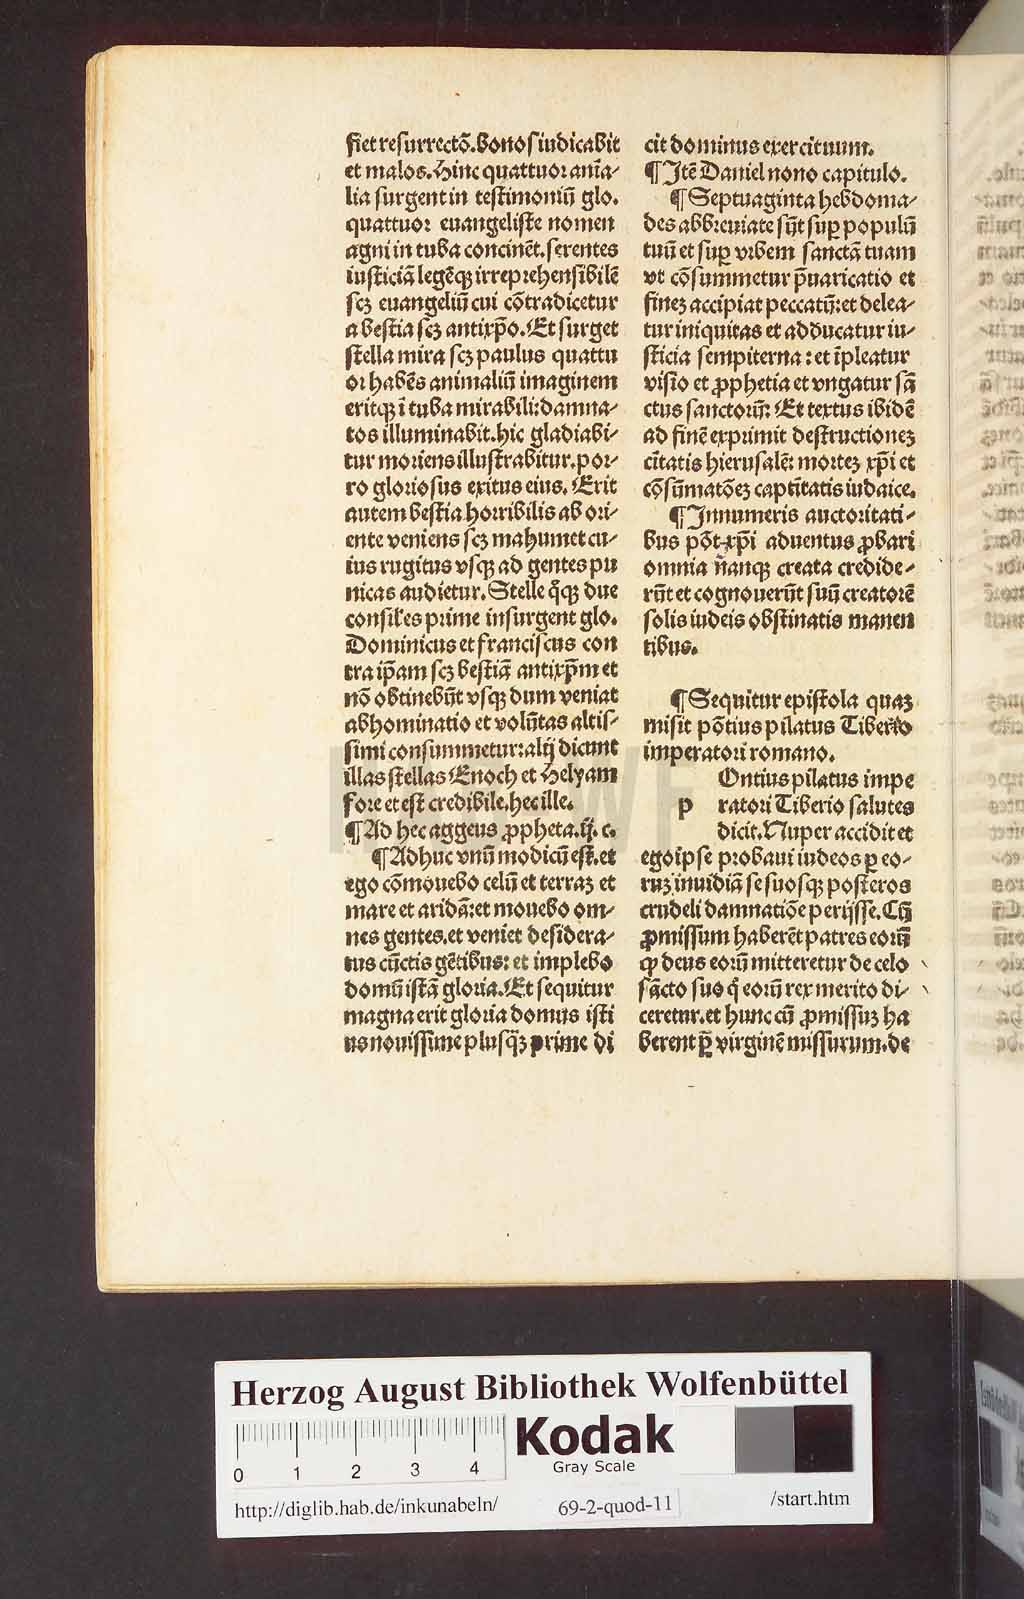 fiet resurrectō. bonos iudicabit
et malos. Hinc quattuor anīa⸗
lia surgent in testimoniū glo.
quattuor euangeliste nomen
agni in tuba concinēt. ferentes
iusticiā legēqꝫ irreprehensibilē
scꝫ euangeliū cui cōtradicetur
a bestia scꝫ antixp̄o. Et surget
stella mira scꝫ paulus quattu
or habēs animaliū imaginem
eritqꝫ ī tuba mirabili: damna⸗
tos illuminabit. hic gladiabi⸗
tur moriens illustrabitur. por⸗
ro gloriosus exitus eius. Erit
autem bestia horribilis ab ori⸗
ente veniens scꝫ mahumet cu⸗
ius rugitus vsqꝫ ad gentes pu
nicas audietur. Stelle q̄qꝫ due
consiles prime insurgent glo.
Dominicus et franciscus con
tra ip̄am scꝫ bestiā antixp̄m et
nō obtinebūt vsqꝫ dum veniat
abhominatio et volūtas altis⸗
simi consummetur: alij dicunt
illas stellas Enoch et Helyam
fore et est credibile. hec ille.
¶ Ad hec aggeus ꝓpheta. ij. c.
¶ Adhuc vnū modicū est. et
ego cōmouebo celū et terraꝫ et
mare et aridā: et mouebo om⸗
nes gentes. et veniet desidera⸗
tus cūctis gētibus: et implebo
domū istā gloria. Et sequitur
magna erit gloria domus isti
us nouissime plusq̄ꝫ prime di
cit dominus exercituum.
¶ Itē Daniel nono capitulo.
¶ Septuaginta hebdoma⸗
des abbreuiate sūt suꝑ populū
tuū et suꝑ vrbem sanctā tuam
vt cōsummetur p̄uaricatio et
fineꝫ accipiat peccatū: et delea⸗
tur iniquitas et adducatur iu⸗
sticia sempiterna: et īpleatur
visio et ꝓphetia et vngatur sā
ctus sanctorū: Et textus ibidē
ad finē exprimit destructioneꝫ
cītatis hierusalē: morteꝫ xp̄i et
cōsūmatōeꝫ captītatis iudaice.
¶ Innumeris auctoritati⸗
bus pōt xp̄i aduentus ꝓbari
omnia n̄anqꝫ creata credide⸗
rūt et cognouerūt suū creatorē
solis iudeis obstinatis manen
tibus.
¶ Sequitur epistola quaꝫ
misit pōtius pilatus Tiberio
imperatori romano.
Ontius pilatus impe
p ratori Tiberio salutes
dicit. Nuper accidit et
ego ipse probaui iudeos ꝑ eo⸗
ruꝫ inuidiā se suosqꝫ posteros
crudeli damnatiōe perijsse. Cū
ꝓmissum haberēt patres eorū
ꝙ deus eorū mitteretur de celo
sācto suo q̄ eorū rex merito di⸗
ceretur. et hunc cū ꝓmissuꝫ ha
berent ꝑ virginē missurum. de
Herzog August Bibliothek Wolfenbüttel
0 1 2 3 4
Kodak
Gray Scale
http://diglib.hab.de/inkunabeln/ 69-2-quod-11 /start.htm